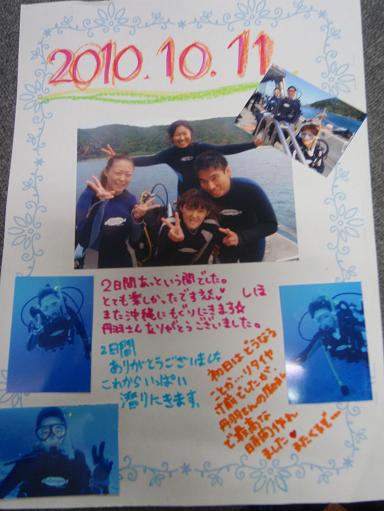 2010.10.11
2日間あっという間でした。
とても楽しかったですよ♥ しほ
また沖縄にもぐりにきます☆
丹羽さんありがとうございました。
2日間
ありがとうございました
これからいっぱい
潜りにきます。
初日はどうなる
ことか…リタイヤ
寸前でしたが、
丹羽さんの
で最高な
2日間でした
また